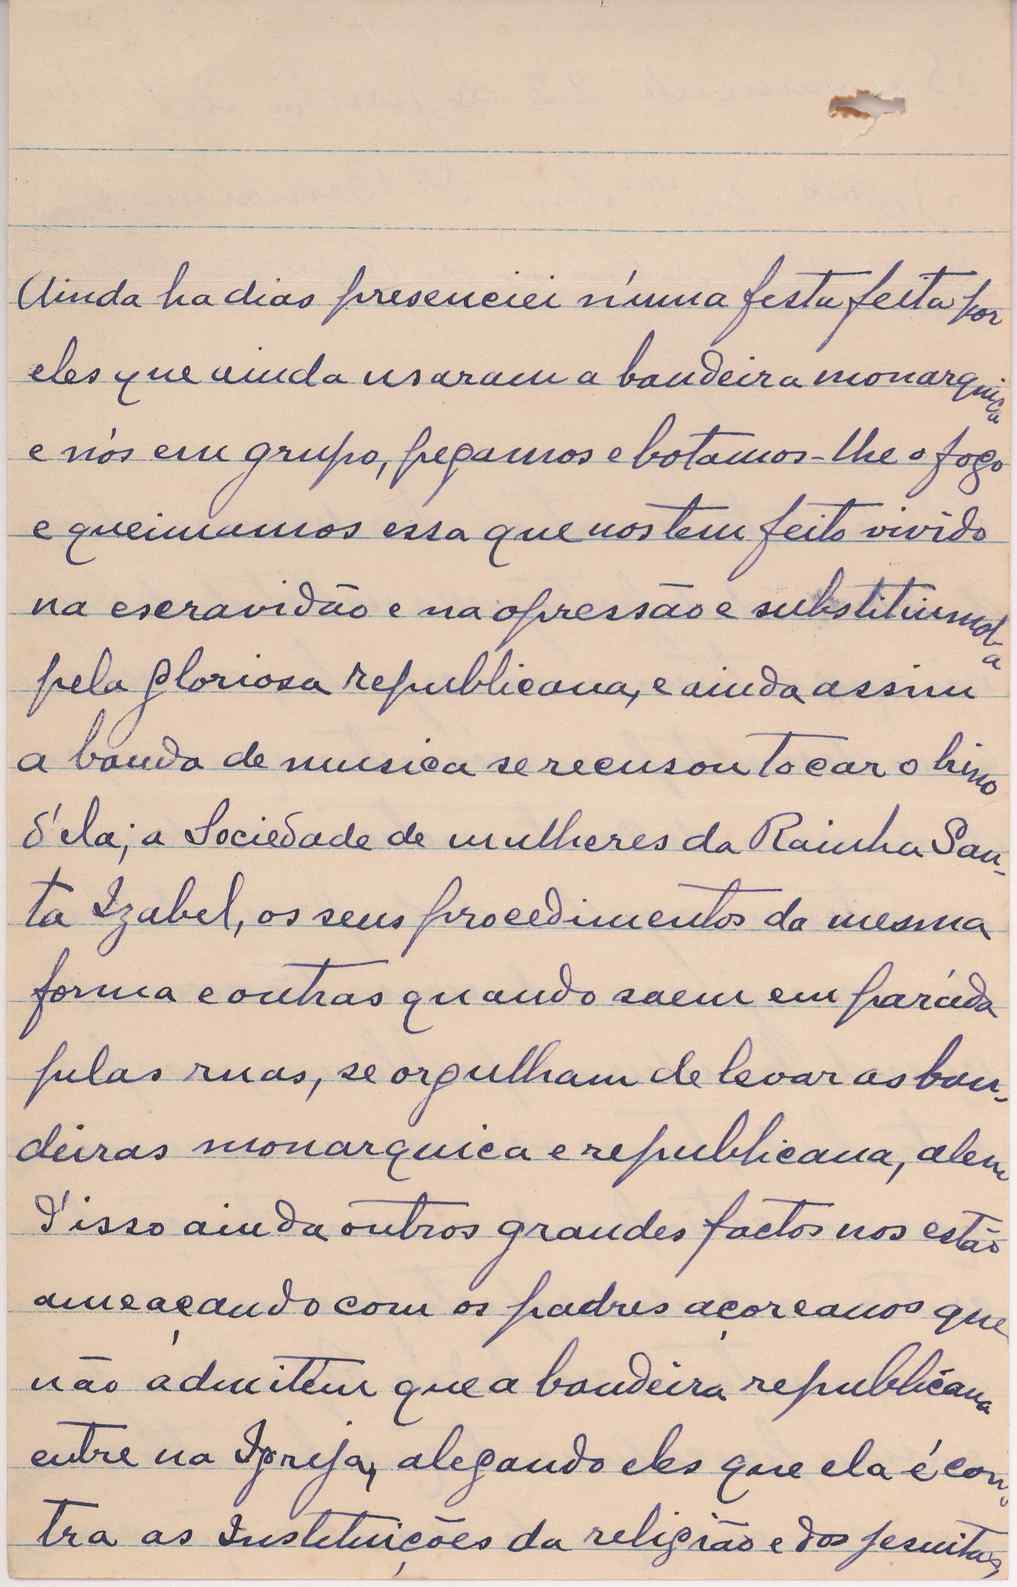 Ainda ha dias presenciei n'uma festa feita por
eles que ainda usaram a bandeira monarquica
e nós em grupo, pegamos e botamos-lhe o fogo
e queimamos essa que nos tem feito vivido
na escravidão e na opressão e substituimol-a
pela gloriosa republicana, e ainda assim
a banda de musica se recusou tocar o hino
d'ela; a Sociedade de mulheres da Rainha San-
ta Izabel, os seus procedimentos da mesma
forma e outras quando saem em paráda
pelas ruas, se orgulham de levar as ban-
deiras monarquica e republicana, alem
d'isso ainda outros grandes factos nos estão
ameaçando com os padres açoreanos que
não ádmitem que a bandeira republicana
entre na Igreja, alegando eles que ela é con-
tra as Instituições da religião e dos jesuitas